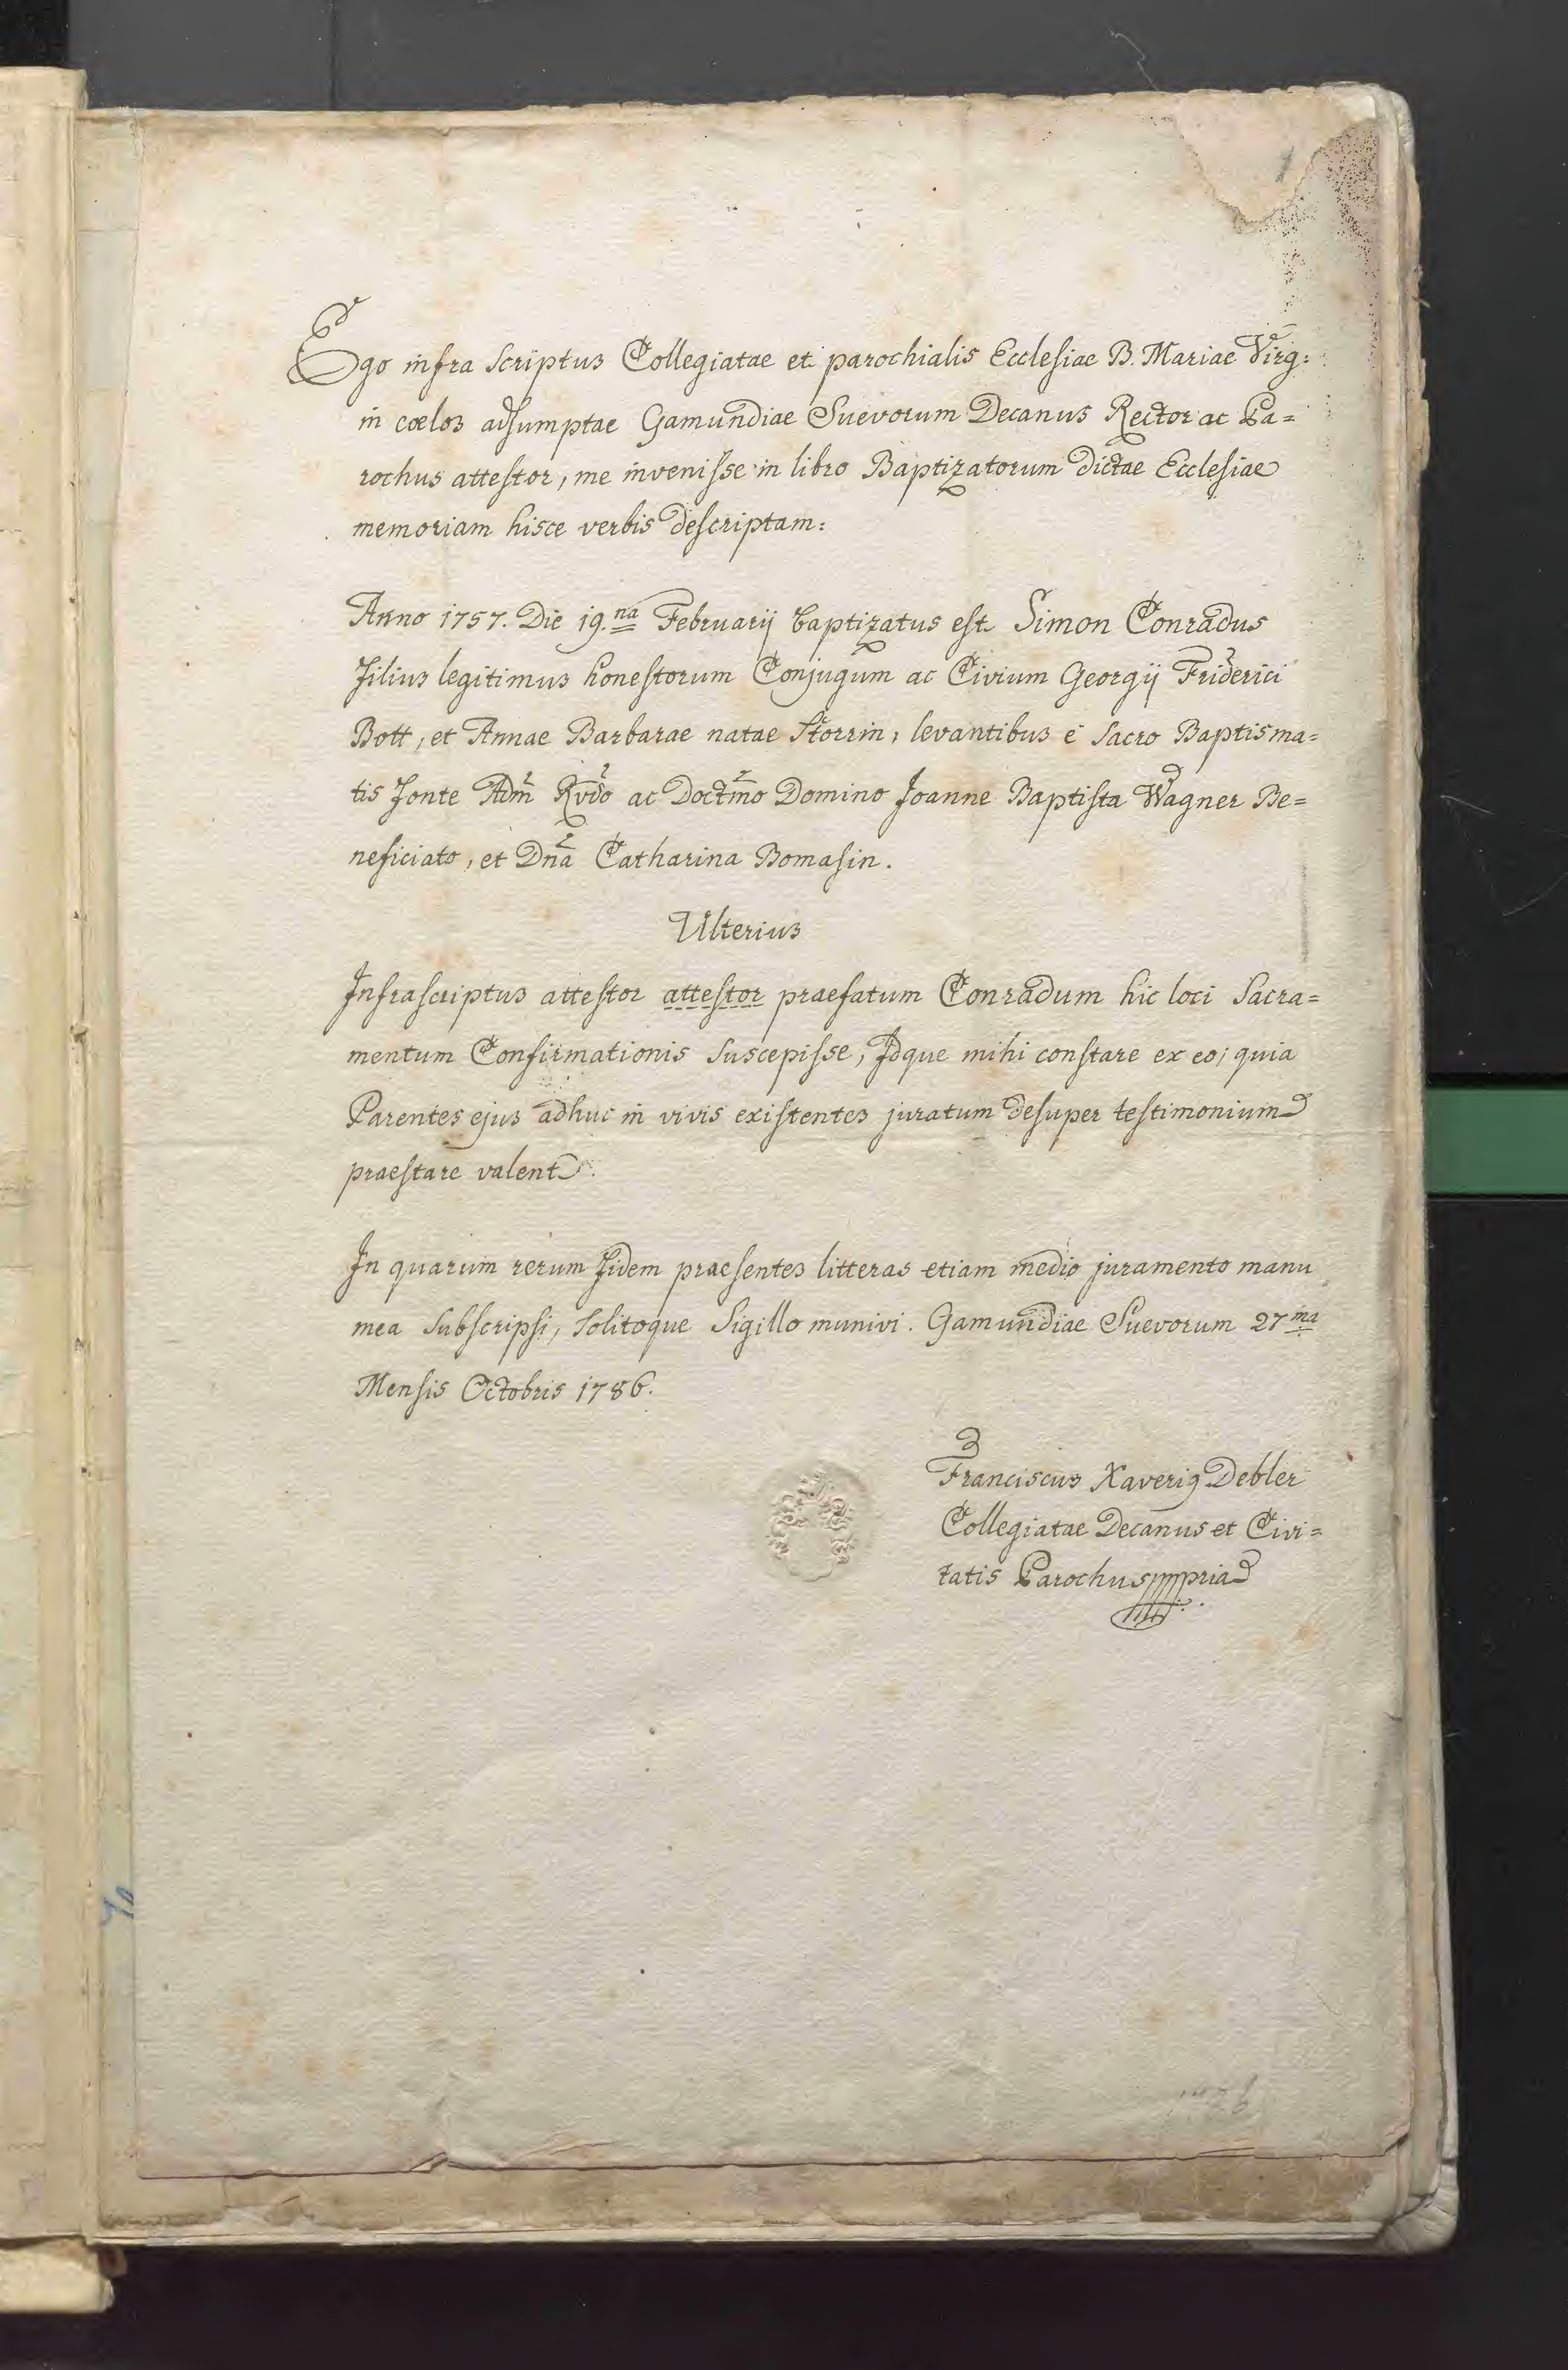 1
Ego infra scriptus Collegiatae et parochialis Ecclesiae B. Mariae Virg:
in coelos adsumptae Gamundiae Suevorum Decanus Rector ac Pa=
rochus attestor, me invenisse in libro Baptizatorum dictae Ecclesiae
memoriam hisce verbis descriptam:
Anno 1757. Die 19.na Februarij baptizatus est Simon Conradus
Filius legitimus honestorum Conjugum ac Civium Georgij Friderici
Bott, et Annae Barbarae natae Storrin, levantibus è Sacro Baptisma=
tis Fonte Adm Rvdo ac Doctmo Domino Joanne Baptista Wagner Be=
neficiato, et Dna Catharina Bomasin.
Ulterius
Infrascriptus attestor attestor praefatum Conradum hic loci Sacra=
mentum Confirmationis suscepisse, Idque mihi constare ex eo; quia
Parentes ejus adhuc in vivis existentes juratum desuper testimonium
praestare valent.
In quarum rerum Fidem praesentes litteras etiam medio juramento manu
mea Subscripsi, Solitoque Sigillo munivi. Gamundiae Suevorum 27ma
Mensis Octobris 1786.
Franciscus Xaverig Debler
Collegiatae Decanus et Civi=
tatis Parochus mppria